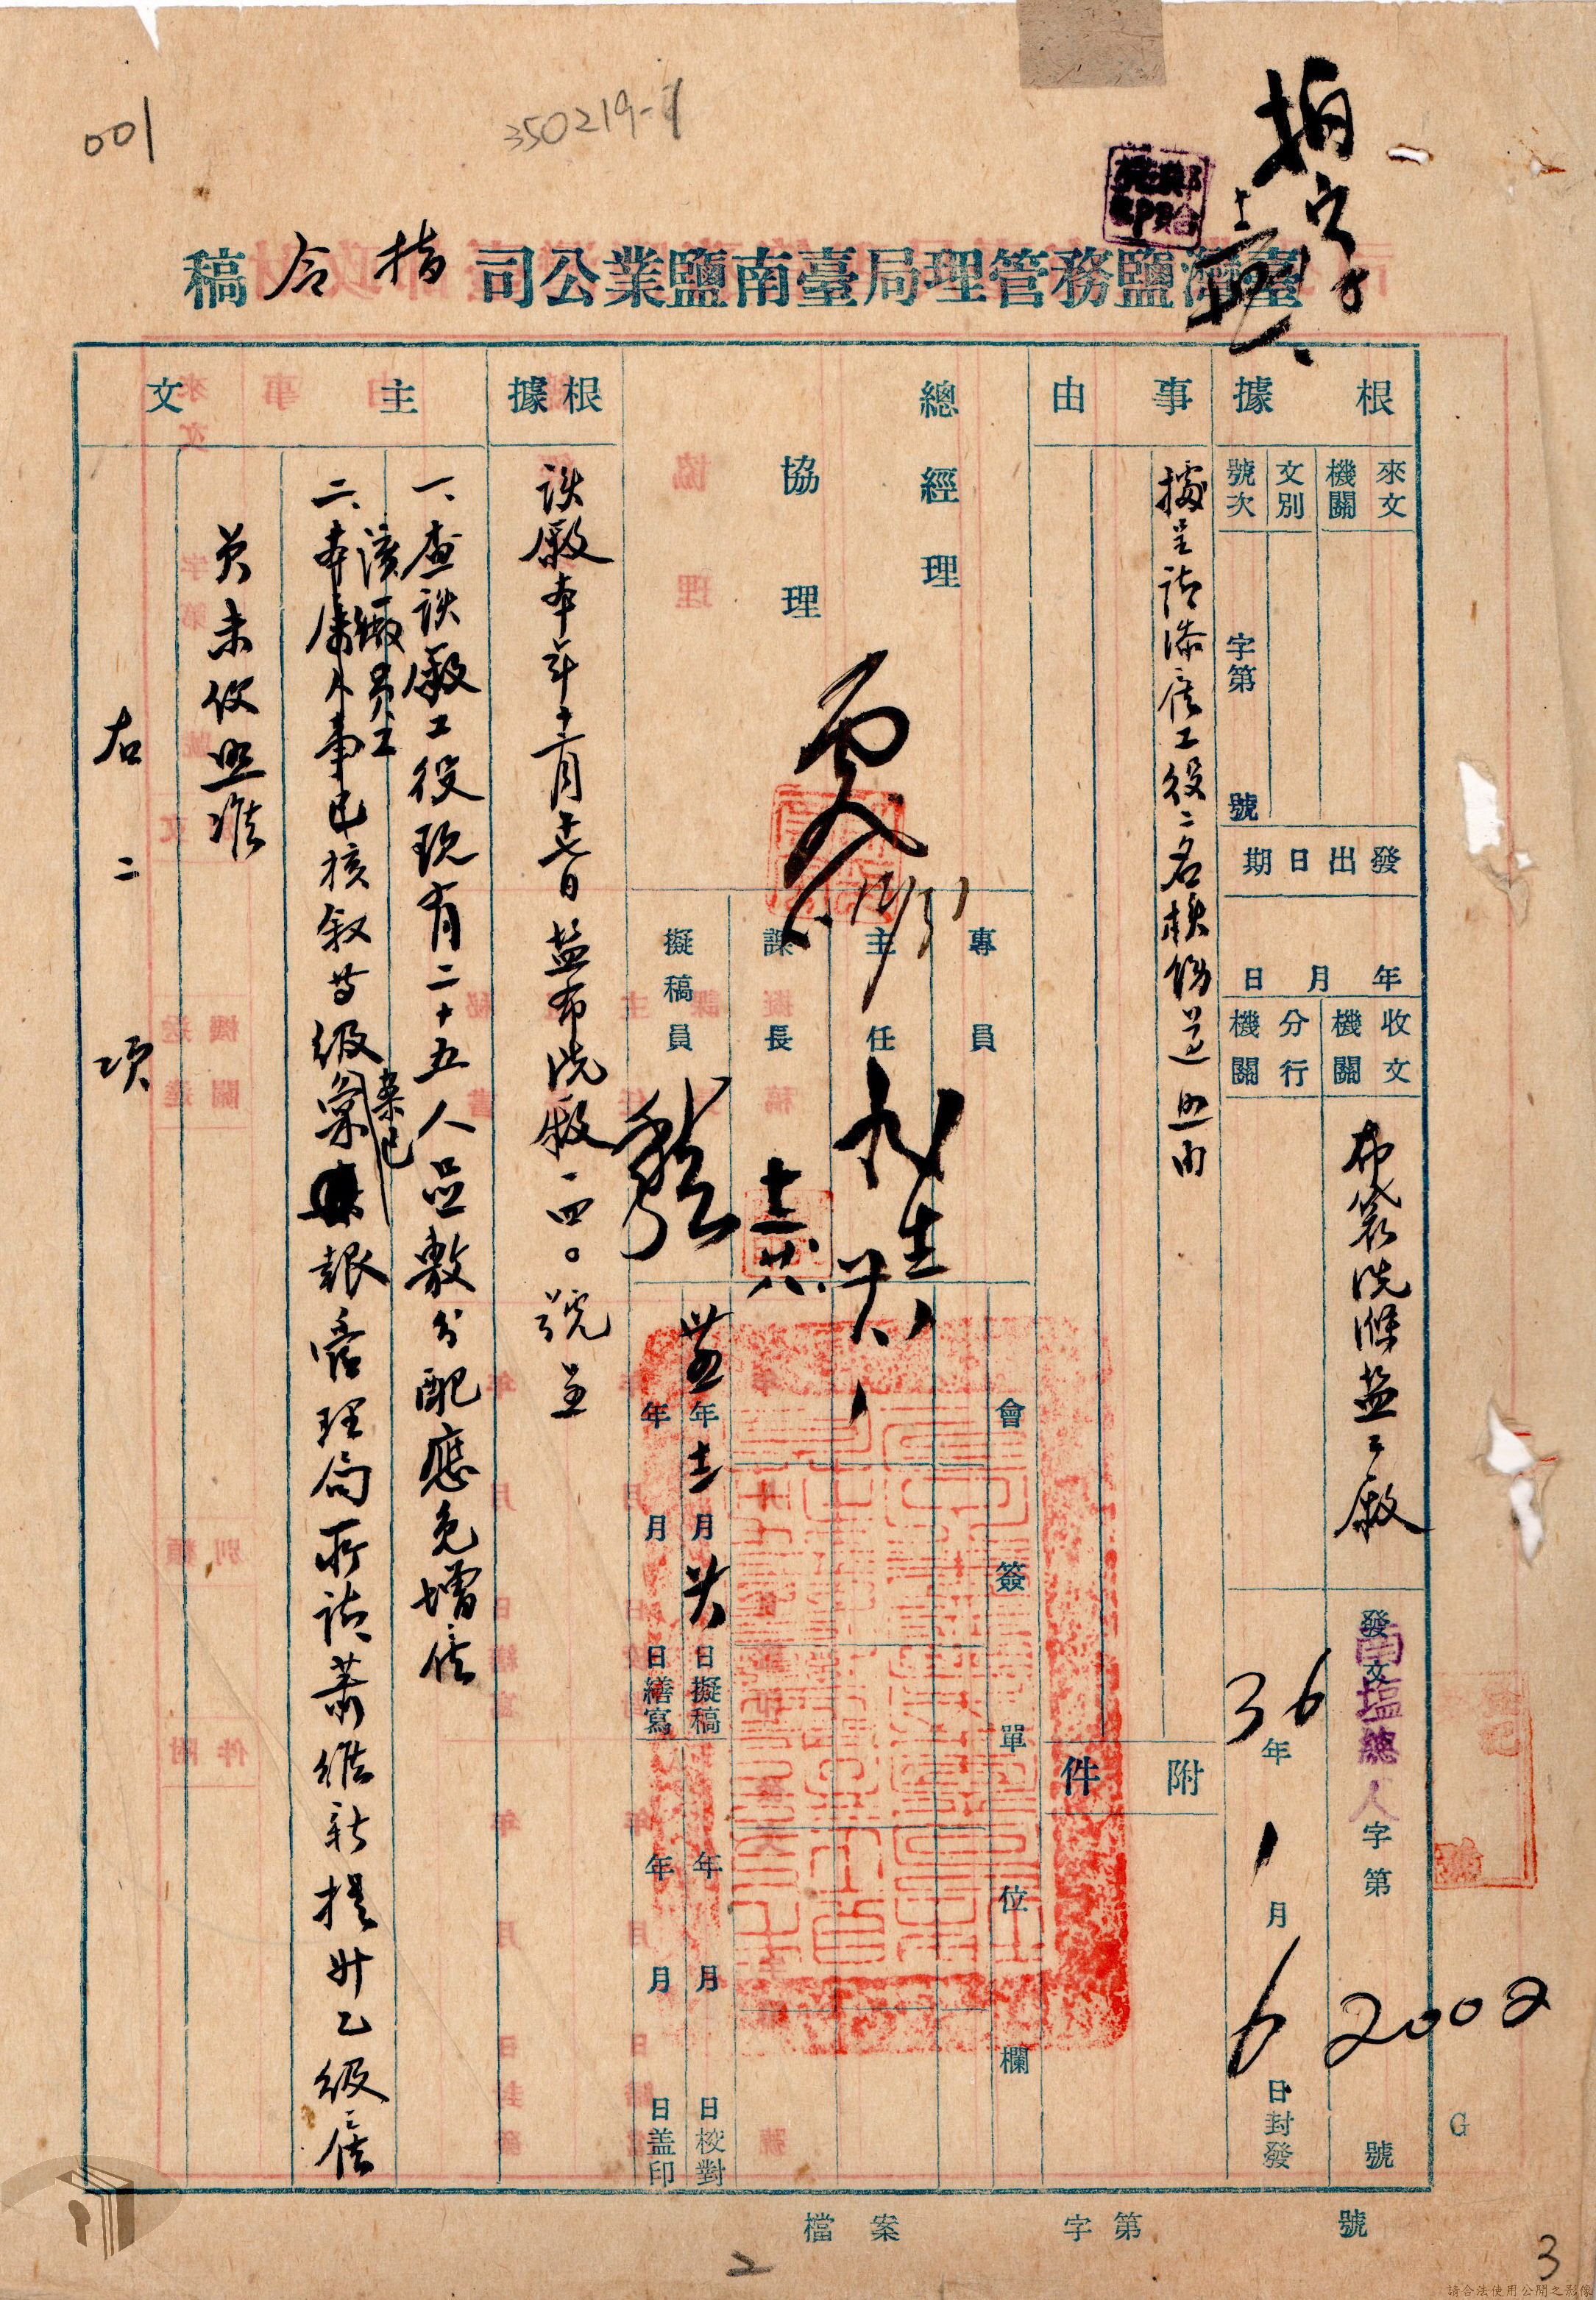 001
350219-1
臺灣鹽務管理局臺南鹽業公司指令稿
根據
來文機關
文別
號次
字第
號
發出日期
年月日
收文機關
分行機關
布袋洗滌盐工廠
發文
南塩總人字第
2002
號
36年1月6日封發
事由
據呈請添僱工役二名核飭遵照由
附件
總經理
協理
專員
主任
課長
擬稿員
會簽單位欄
年十二月
日擬稿
年月日繕寫
年月日校對
年月日盖印
根據
該廠本年十二月十七日盐布洗廠一四〇號呈
主文
一、查該廠工役現有二十五人應敷分配應免增僱
二、
該廠員工
已核敘等級
業已
報管理局所請蕭維新提升乙級僱
員未便照准
右二項
檔案
字第
號
G
2
3
請合法使用公開之影像